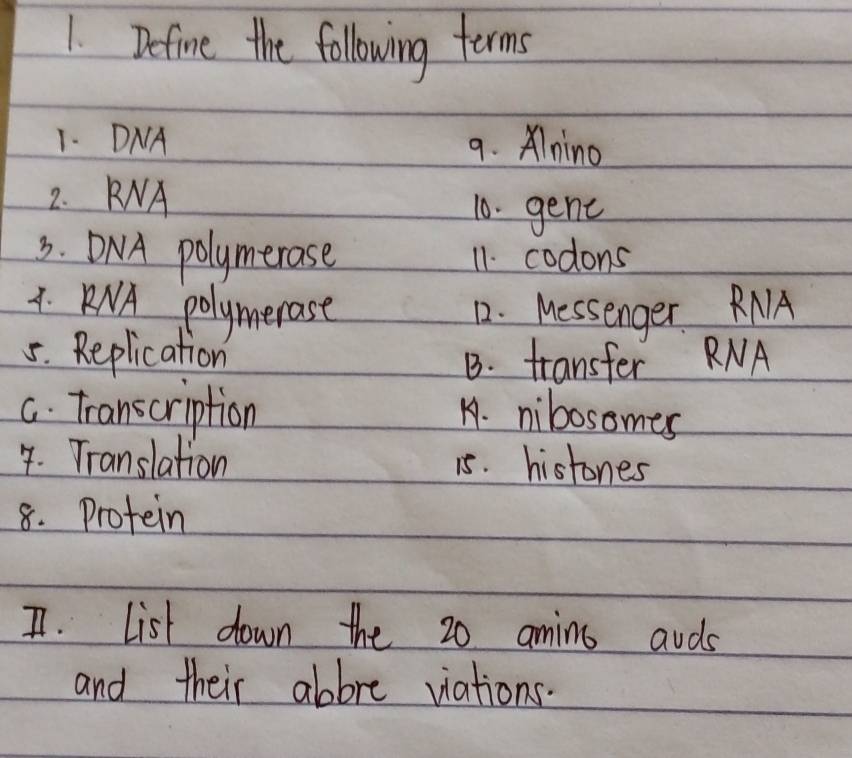 1. Define the following terms
1. DNA
2. RNA
3. DNA polymerase
4. RNA polymerase
5. Replication
6. Transcription
7. Translation
8. Protein
9. Alnino
10. gene
11. codons
12. Messenger RNA
13. transfer RNA
14. nibosomes
15. histones
II. List down the 20 amino auds
and their abbre viations.